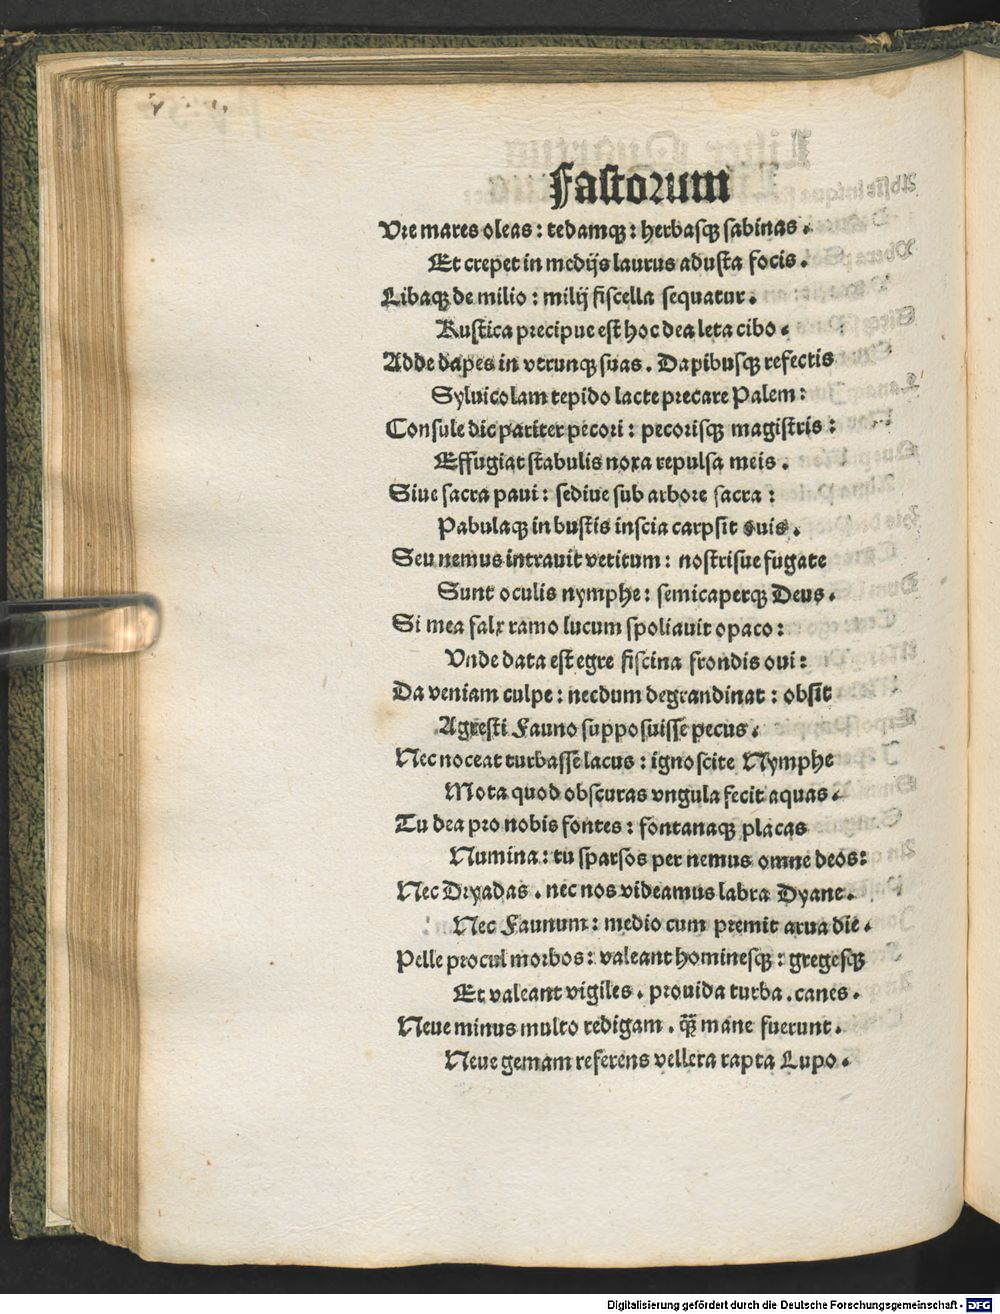 Fastorum
Vre mares oleas : tedamqꝫ : herbasqꝫ sabinas .
Et crepet in medijs laurus adusta focis .
Libaqꝫ de milio : milij fiscella sequatur .
Rustica precipue est hoc dea leta cibo .
Adde dapes in vtrunqꝫ suas . Dapibusqꝫ refectis
Syluicolam tepido lacte precare Palem :
Consule dic pariter pecori : pecorisqꝫ magistris :
Effugiat stabulis noxa repulsa meis .
Siue sacra paui : sediue sub arbore sacra :
Pabulaqꝫ in bustis inscia carpsit ouis .
Seu nemus intrauit vetitum : nostrisue fugate
Sunt oculis nymphe : semicaperqꝫ Deus .
Si mea falx ramo lucum spoliauit opaco :
Vnde data est egre fiscina frondis oui :
Da veniam culpe : necdum degrandinat : obsit
Agresti Fauno supposuisse pecus .
Nec noceat turbasse lacus : ignoscite Nymphe
Mota quod obscuras vngula fecit aquas .
Tu dea pro nobis fontes : fontanaqꝫ placas
Numina : tu sparsos per nemus omne deos :
Nec Dryadas . nec nos videamus labra Dyane .
Nec Faunum : medio cum premit arua die .
Pelle procul morbos : valeant hominesqꝫ : gregesqꝫ
Et valeant vigiles . prouida turba . canes .
Neue minus multo redigam . qꝫ̃ mane fuerunt .
Neue gemam referens vellera rapta Lupo .
Digitalisierung gefördert durch die Deutsche Forschungsgemeinschaft - DFG